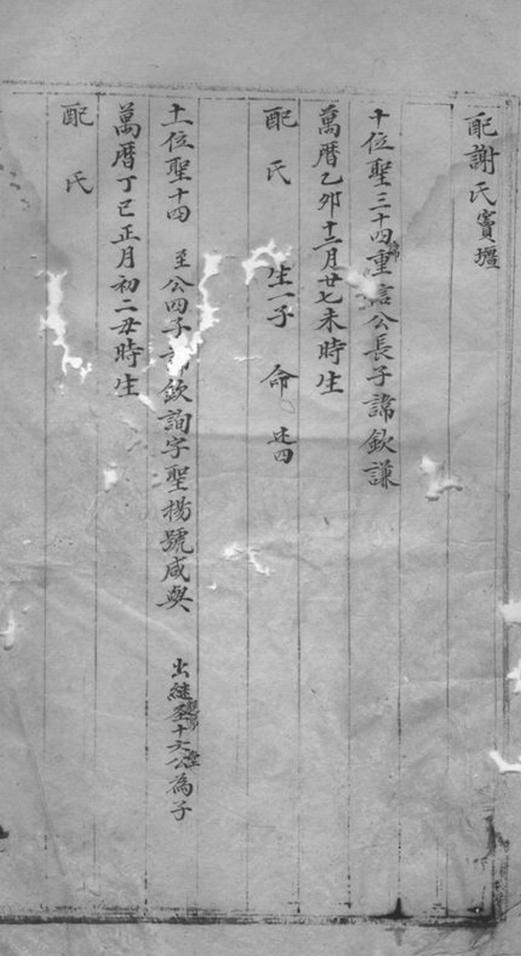 配謝氏竇壇
十位聖三十四重言公長子諱欽謙
萬曆乙卯十二月廿七未時生
配 氏 生一子 命 廷四
十一位聖十四 至公四子諱欽詢字聖楊號咸與 出繼至十六公為子
萬曆丁巳正月初二丑時生
配 氏